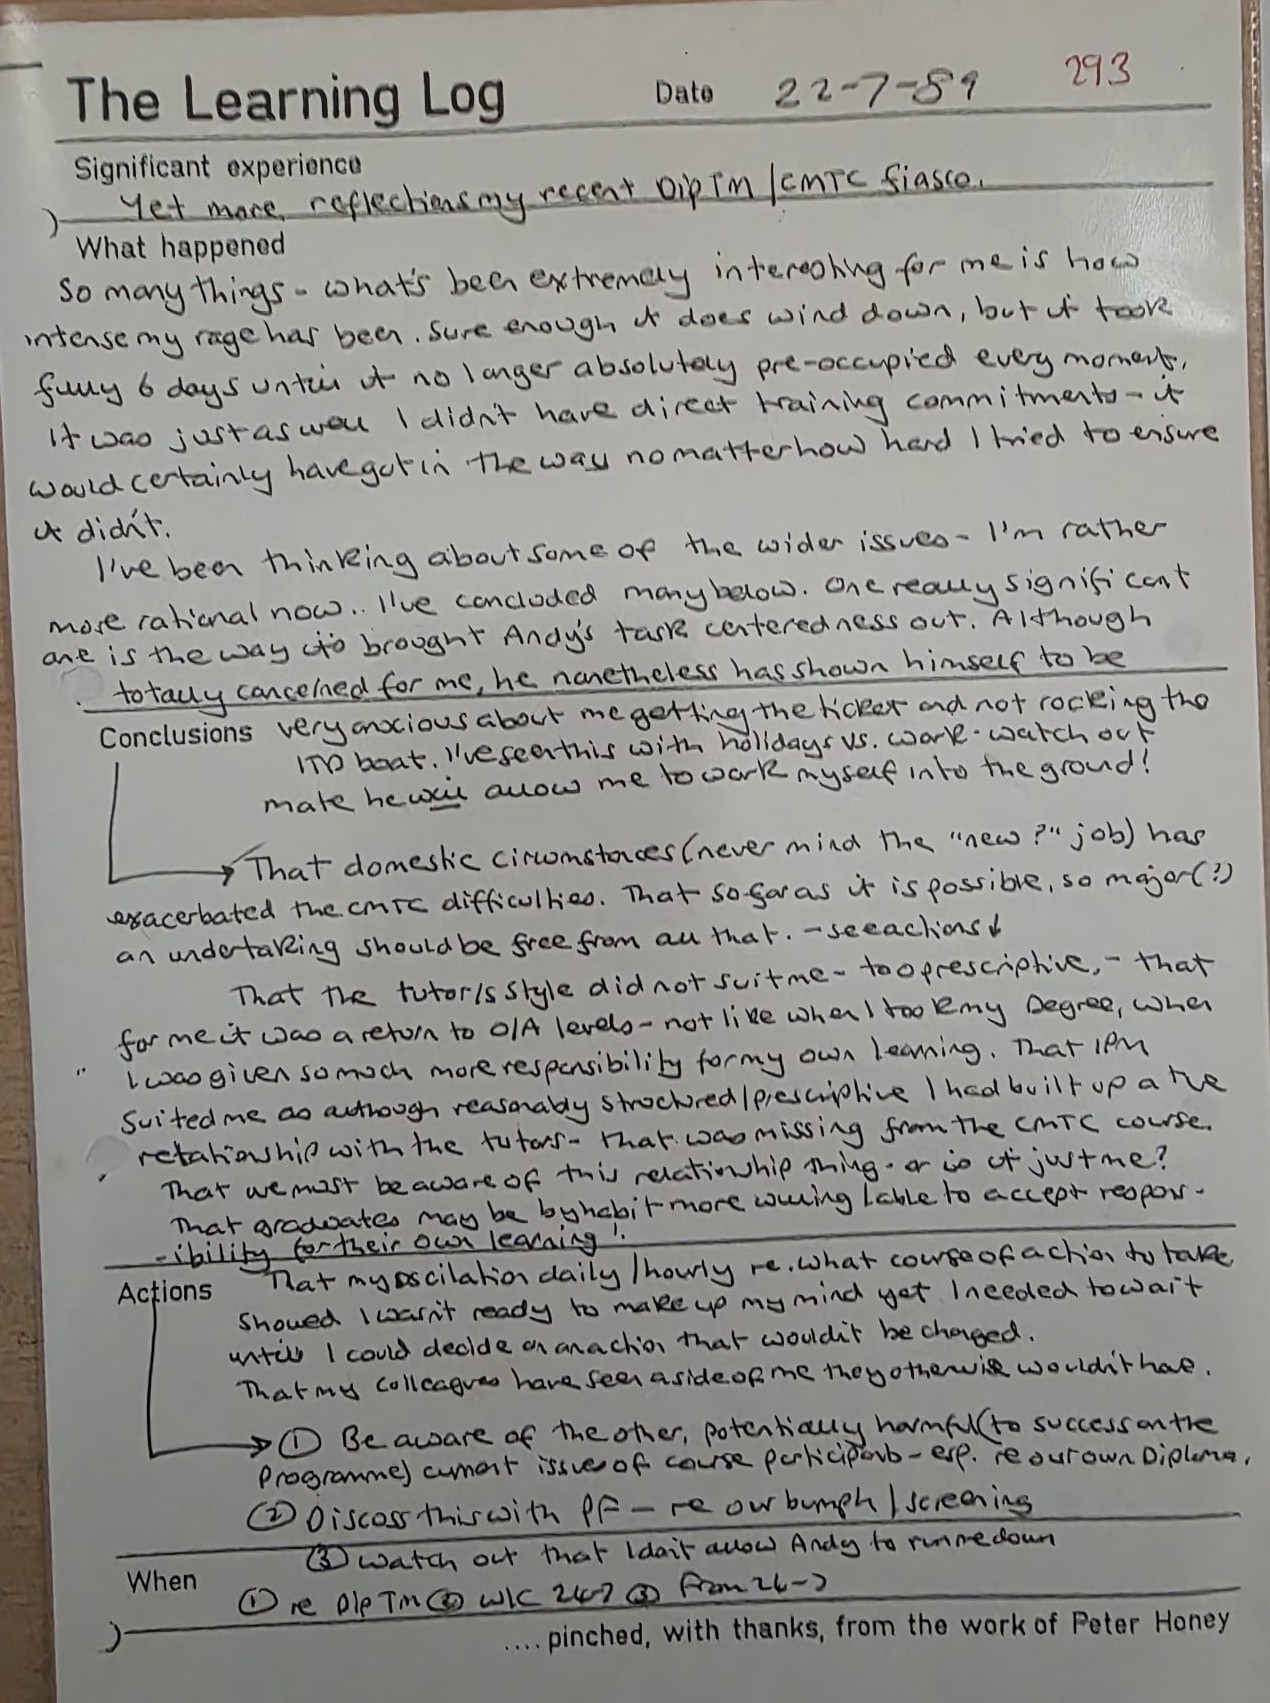 293
The Learning Log Date 22-7-89
Significant experience
Yet more reflections my recent DipTM/CMTC fiasco.
What happened
So many things - what's been extremely interesting for me is how
intense my rage has been. Sure enough it does wind down, but it took
fully 6 days until it no longer absolutely pre-occupied every moment.
It was just as well I didn't have direct training commitments - it
would certainly have got in the way no matter how hard I tried to ensure
it didn't.
I've been thinking about some of the wider issues - I'm rather
more rational now.. I've concluded many below. One really significant
one is the way it's brought Andy's task centeredness out. Although
totally concerned for me, he nonetheless has shown himself to be
Conclusions very anxious about me getting the ticket and not rocking the
ITD boat. I've seen this with holidays vs. work - watch out
mate he will allow me to work myself into the ground!
That domestic circumstances (never mind the "new?" job) has
exacerbated the CMTC difficulties. That so far as it is possible, so major(?)
an undertaking should be free from all that. - see actions ↓
That the tutor/s style did not suit me - too prescriptive, - that
for me it was a return to O/A levels - not like when I took my Degree, when
I was given so much more responsibility for my own learning. That IPM
suited me as although reasonably structured/prescriptive I had built up a +ve
relationship with the tutors - that was missing from the CMTC course.
That we must be aware of this relationship thing - or is it just me?
That graduates may be by habit more willing/able to accept respons-
-ibility for their own learning!
Actions That my oscilation daily/hourly re. what course of action to take
showed I wasn't ready to make up my mind yet. I needed to wait
until I could decide on an action that wouldn't be changed.
That my colleagues have seen a side of me they otherwise wouldn't have.
① Be aware of the other, potentially harmful (to success on the
programme) current issues of course participants - esp. re our own Diploma.
② Discuss this with PF - re our bumph/screening
③ Watch out that I don't allow Andy to run me down
When
① re DipTM ② W/C 24-7 ③ From 24-7
.... pinched, with thanks, from the work of Peter Honey